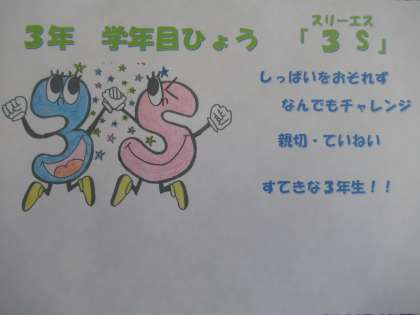 スリーエス
3年 学年目ひょう 「3S」
しっぱいをおそれず
なんでもチャレンジ
親切・ていねい
すてきな3年生！！